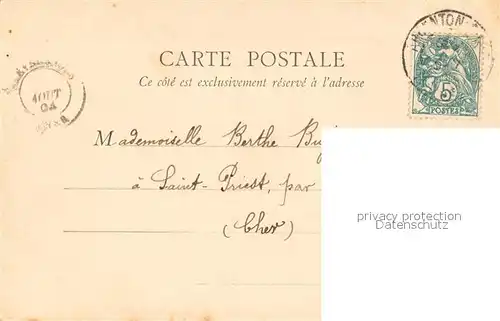 CARTE POSTALE
Ce côté est exclusivement réservé à l'adresse
AOUT
04
5
POSTES
Mademoiselle Berthe
à Saint-Priest, par
(Cher)
privacy protection
Datenschutz